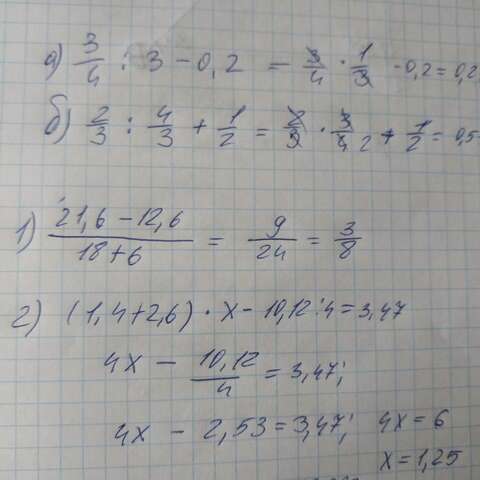 а) 3/4 : 3 - 0,2 = 3/4 · 1/3 - 0,2 = 0,2
б) 2/3 : 4/3 + 1/2 = 2/3 · 3/4 2 + 1/2 = 0,5
1) (21,6 - 12,6)/(18+6) = 9/24 = 3/8
2) (1,4+2,6) · x - 10,12:4 = 3,47
4x - 10,12/4 = 3,47;
4x - 2,53 = 3,47; 4x = 6
x = 1,25